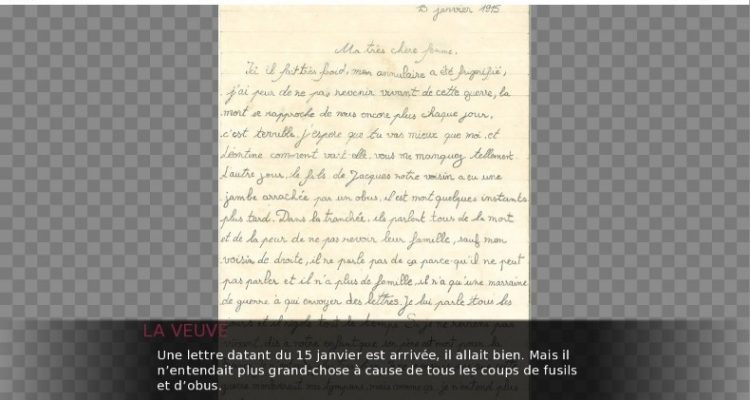 15 janvier 1915
Ma très chère femme,
Ici il fait très froid, mon annulaire a été frigorifié,
j'ai peur de ne pas revenir vivant de cette guerre, la
mort se rapproche de nous encore plus chaque jour,
c'est terrible. j'espère que tu vas mieux que moi, et
Léontine comment va-t-elle, vous me manquez tellement.
L'autre jour, le fils de Jacques notre voisin a eu une
jambe arrachée par un obus, il est mort quelques instants
plus tard. Dans la tranchée, ils parlent tous de la mort
et de la peur de ne pas revoir leur famille, sauf mon
voisin de droite, il ne parle pas de ça parce-qu'il ne peut
pas parler et il n'a plus de famille, il n'a qu'une marraine
de guerre à qui envoyer des lettres. Je lui parle tous les
jours et il rigole tout le temps. Si je ne reviens pas
vivant, dis à notre enfant que son père est mort pour la
LA VEUVE
Une lettre datant du 15 janvier est arrivée, il allait bien. Mais il
n'entendait plus grand-chose à cause de tous les coups de fusils
et d'obus.